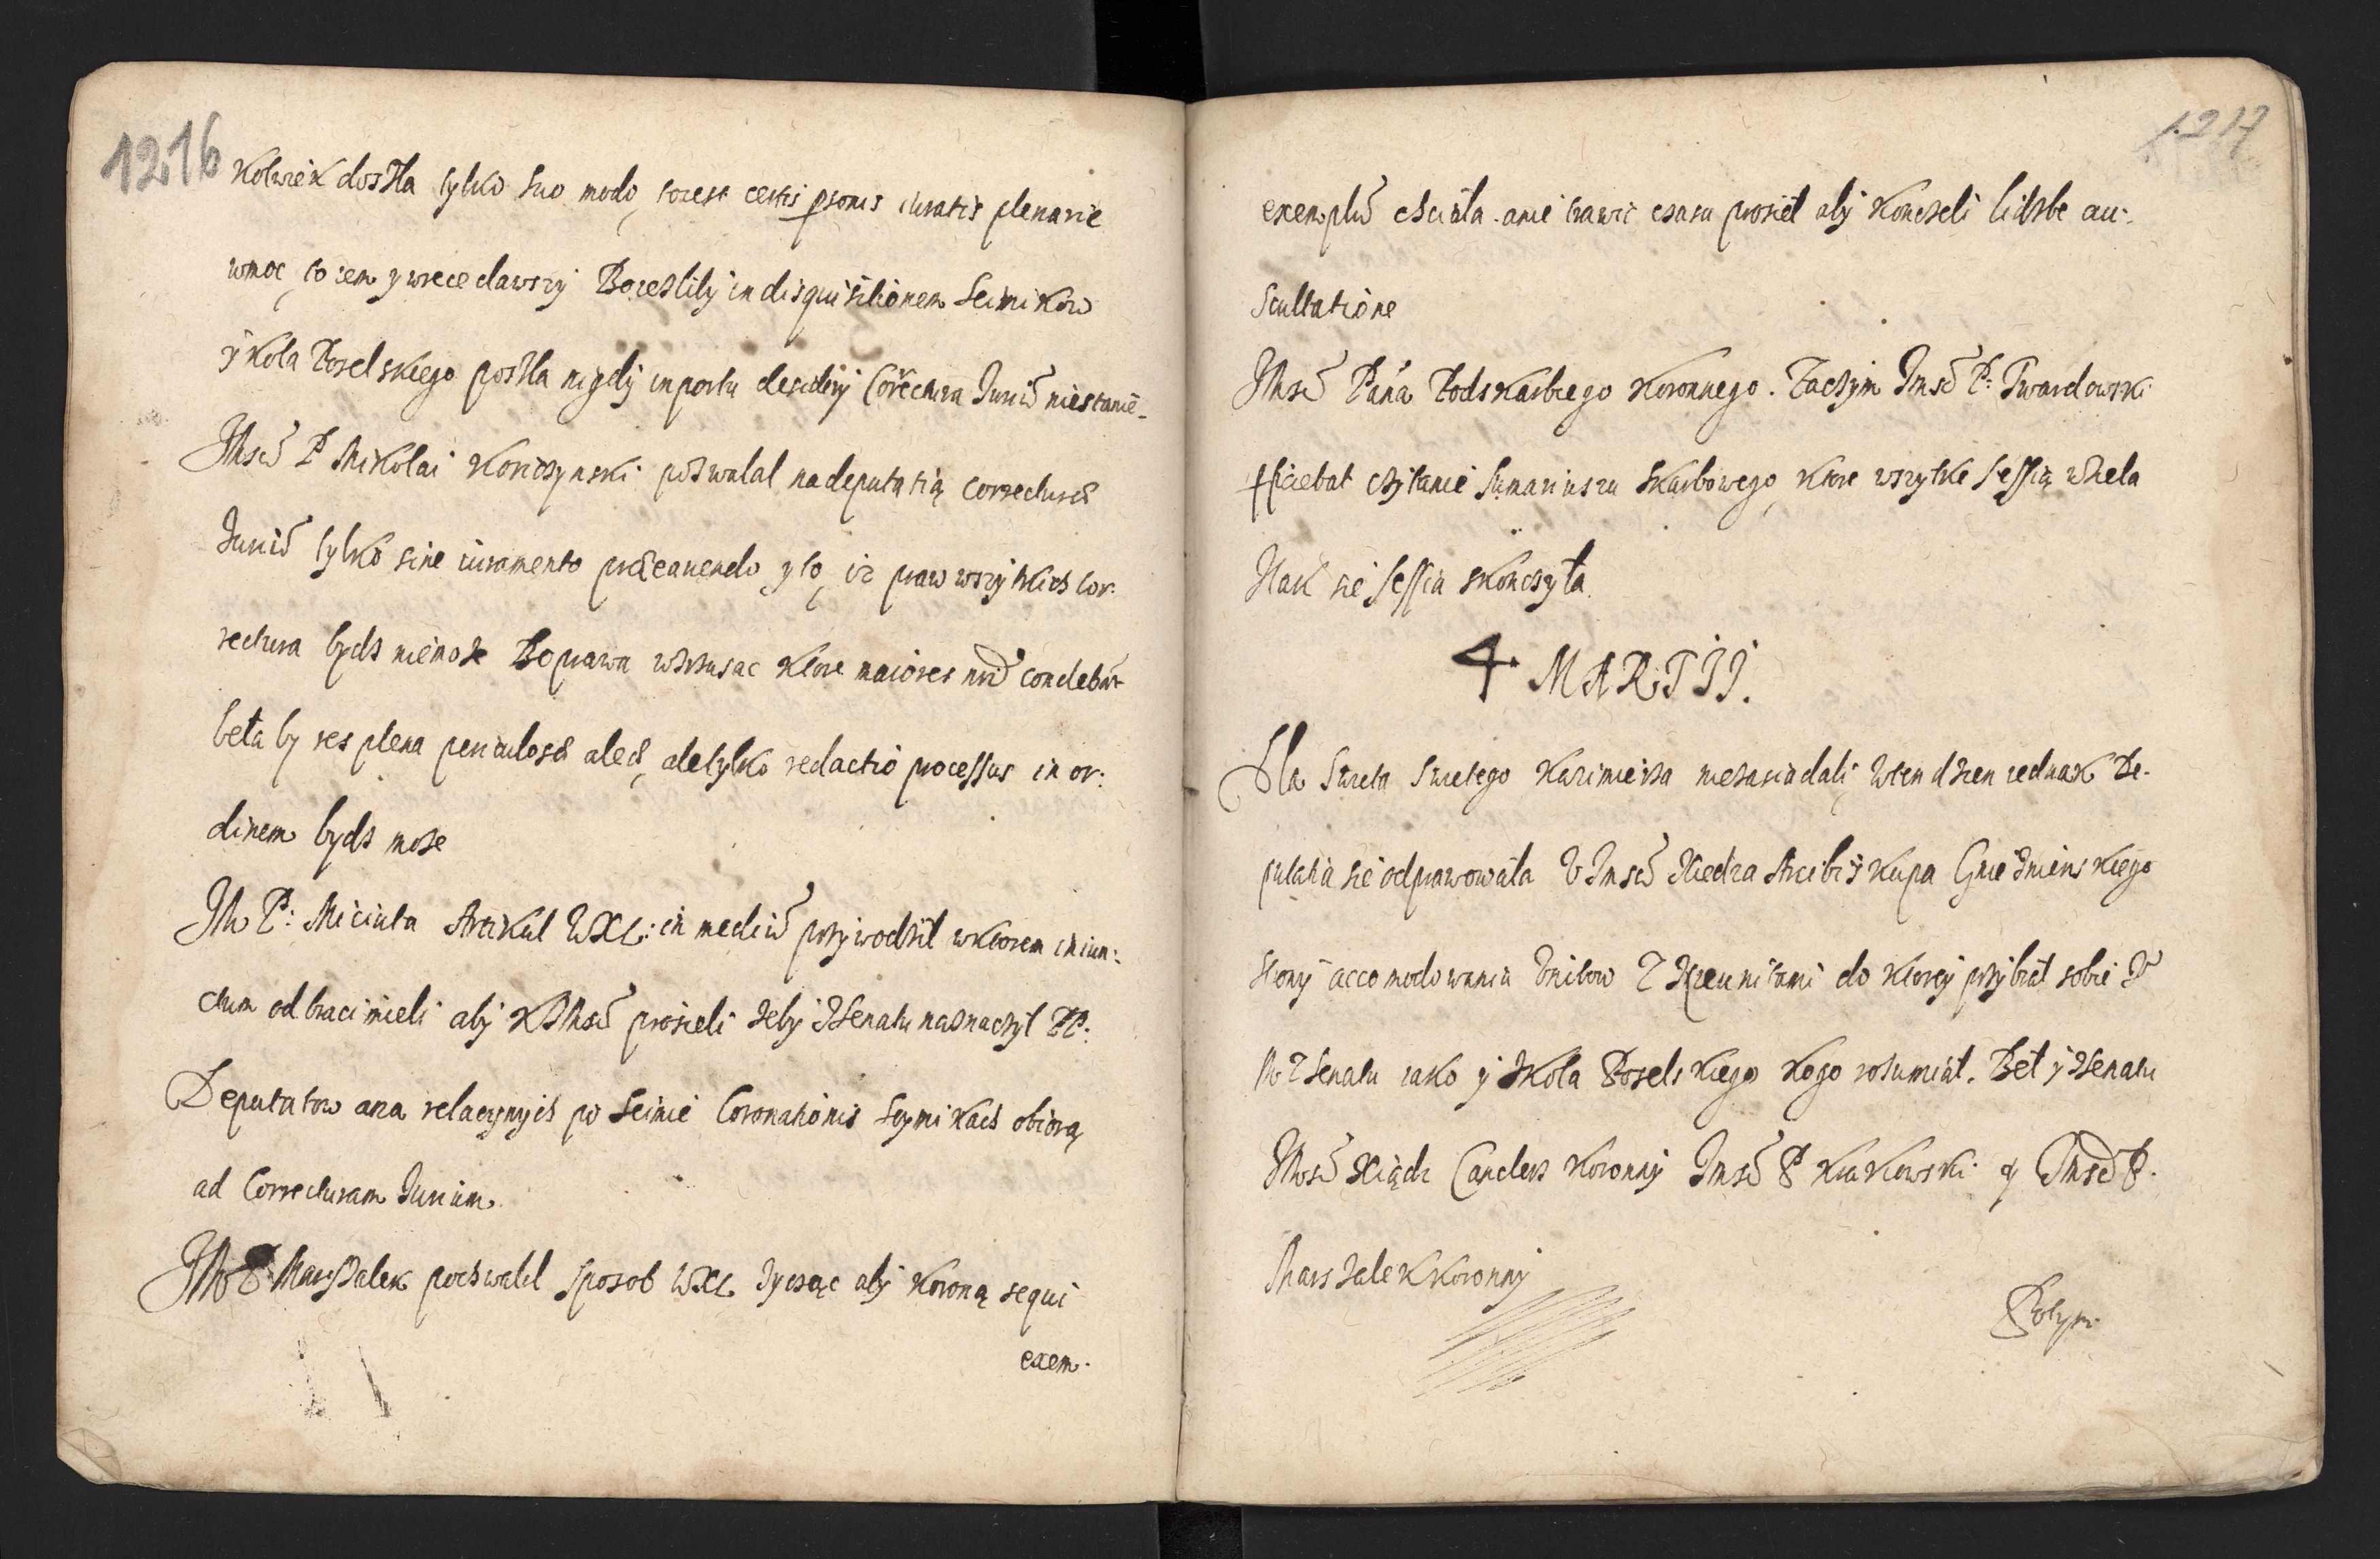 1216
kolwiek doszła tylko suo modo, to iest certis psonis iuratis plenarie
wmoc, to iem y wręce dawszy Bo ieszliby in disquisitionem Seimikow
y kola Poselskiego poszła nigdy in portu desideÿ Corectura Juriū niestanie.
Jmsć P Mikolai Koniczynski poswalal na deputatią correcturæ
Juriū tylko sine iuramento præcauendo y to, iz praw wszytkich cor:
rectura bydz niemoze Bo prawa wzrusac ktore maiores nrī condebāt
bełaby res plena periculosæ aleæ, ale tylko redactio processus in or:
dinem bydz moze
Jm P: Miciuta Artikul WXL: in mediū przywodził wktorem iniun:
ctum od braci mieli aby KJMsć prosieli zeby z Senatu naznaczył PP:
Deputatow a na relacyjnych po Seimie Coronationis Seymikach obiorą
ad Correcturam Jurium.
Jm P Marszalek pochwalił sposob WXL zycząc aby Koroną sequi
exem.
1217
exemplū chciała. a nie trawić czasu prosieł aby konczeli liczbe au:
scultatione
Jmsć Pana Podskarbiego Koronnego. Zaczym Jmsć P: Twardowski
pficiebat czytanie Sumariuszu skarbowego, ktore wszytke Sessią wzieła
Itak sie Sessia skonczyła.
4. MARTII.
Dla Swieta Swietego Kazimierza niezasiadali, wten dzien iednak De-
putatia sie odprawowała V Jmsć Xiedza Arcibiskupa Gnieznienskiego
strony accomodowania Vnitow z Dizunitami do ktorey przybrał sobie J
M z Senatu iako y zkoła Poselskiego kogo rozumiał. Beł y z Senatu
Jmsć Xiądz Canclerz Koronny Jmsć P Krakowski y Jmsć P.
Marszalek Koronny
Potym